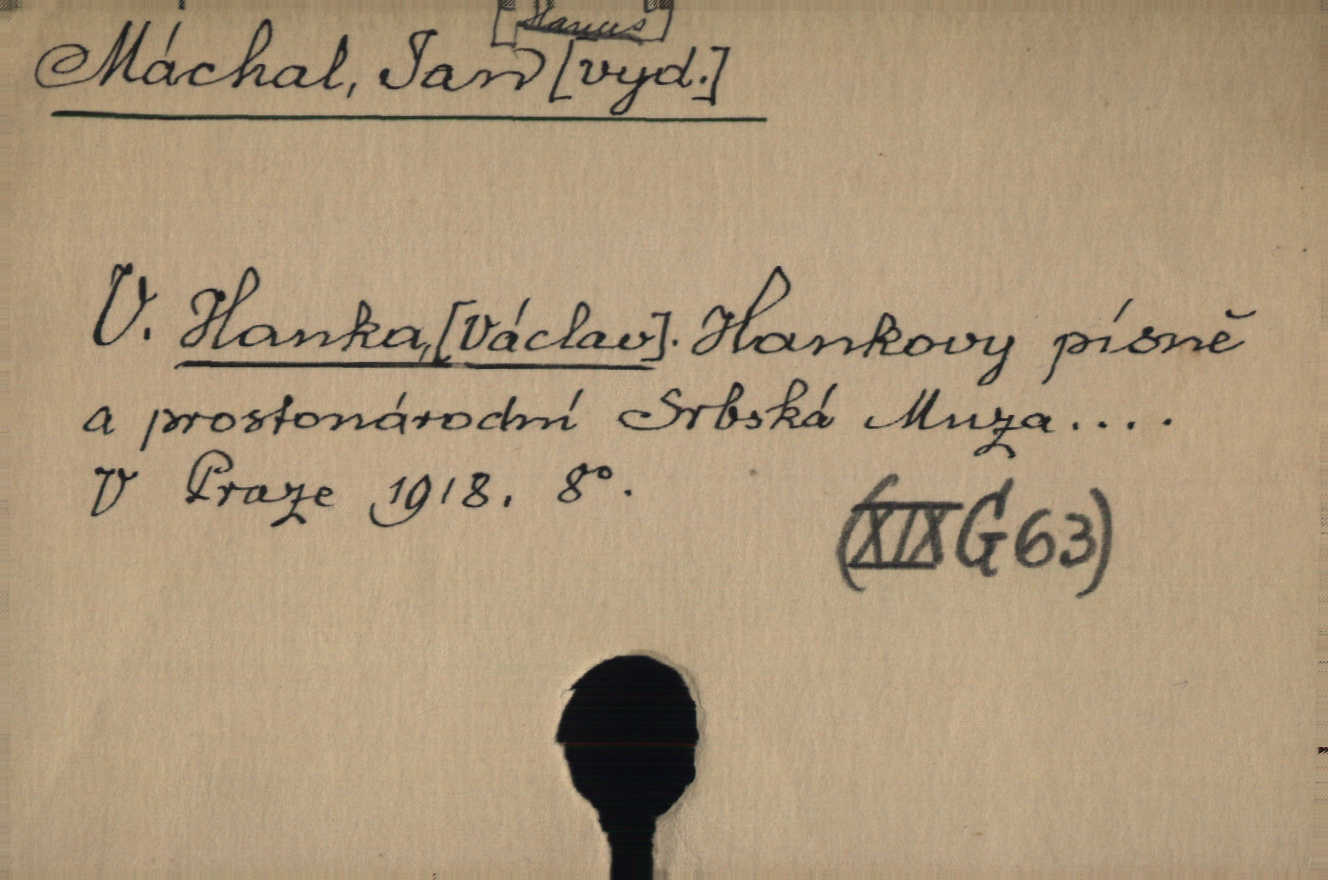 [Hanuš]
Máchal, Jan [vyd.]
V. Hanka, [Václav]. Hankovy písně
a prostonárodní Srbská Muza....
V Praze 1918. 8°.
(XIX G 63)